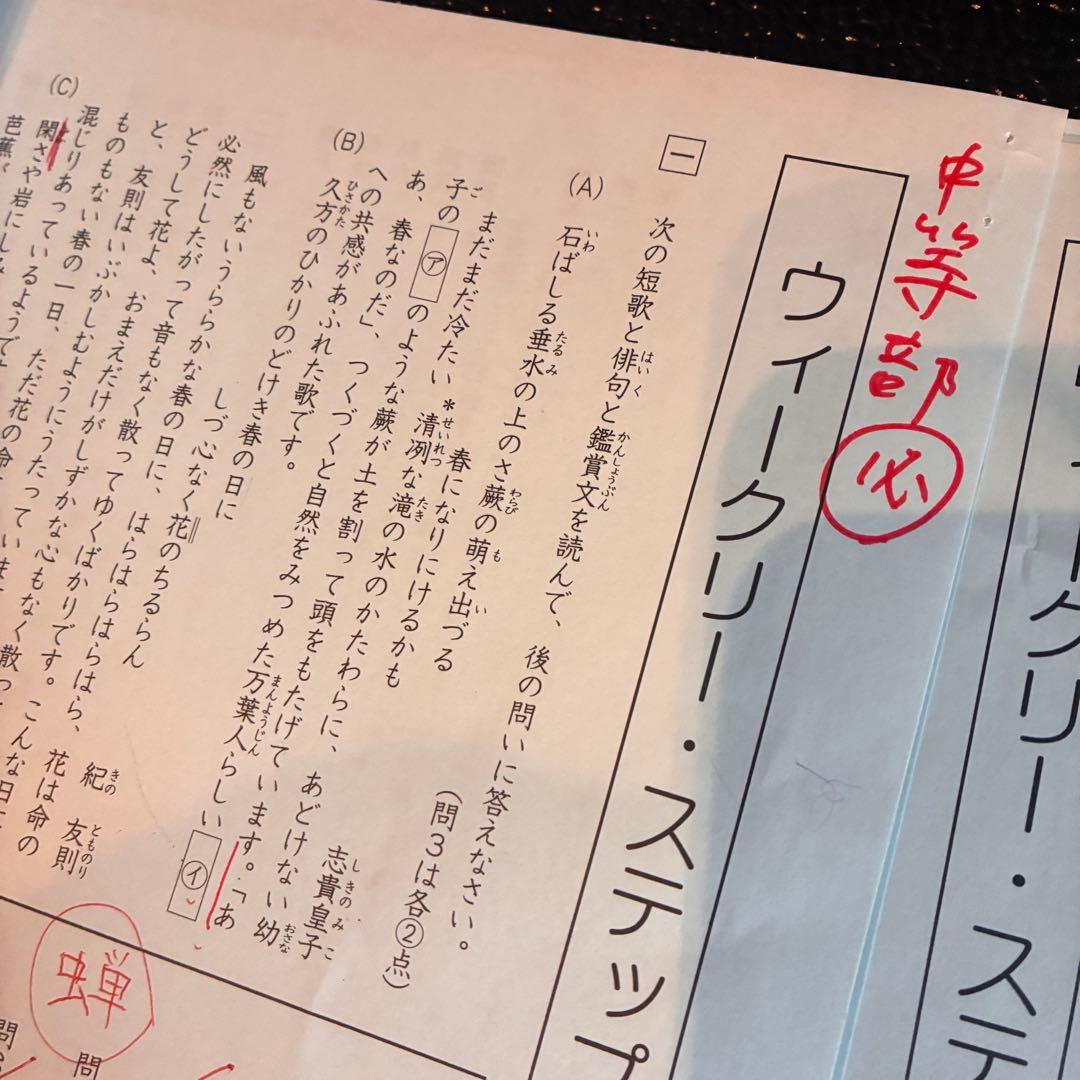 中等部 必
ウィークリー・ステップ
一 次の短歌と俳句と鑑賞文を読んで、後の問いに答えなさい。
(問3は各②点)
(A) 石ばしる垂水の上のさ蕨の萌え出づる
春になりにけるかも
志貴皇子
まだまだ冷たい*清冽な滝の水のかたわらに、あどけない幼
子の㋐のような蕨が土を割って頭をもたげています。「あ
あ、春なのだ」、つくづくと自然をみつめた万葉人らしい㋑
への共感があふれた歌です。
(B) 久方のひかりのどけき春の日に
しづ心なく花のちるらん
紀友則
風もないうららかな春の日に、はらはらはらはら、花は命の
必然にしたがって音もなく散ってゆくばかりです。こんな日に
どうして花よ、おまえだけがしずかな心もなく散っ
と、友則はいぶかしむようにうたっていま
ものもない春の一日、ただ花の命
混じりあっているようです
(C) 閑さや岩にしみ
芭蕉
蝉
問
問
ウィークリー・ステ